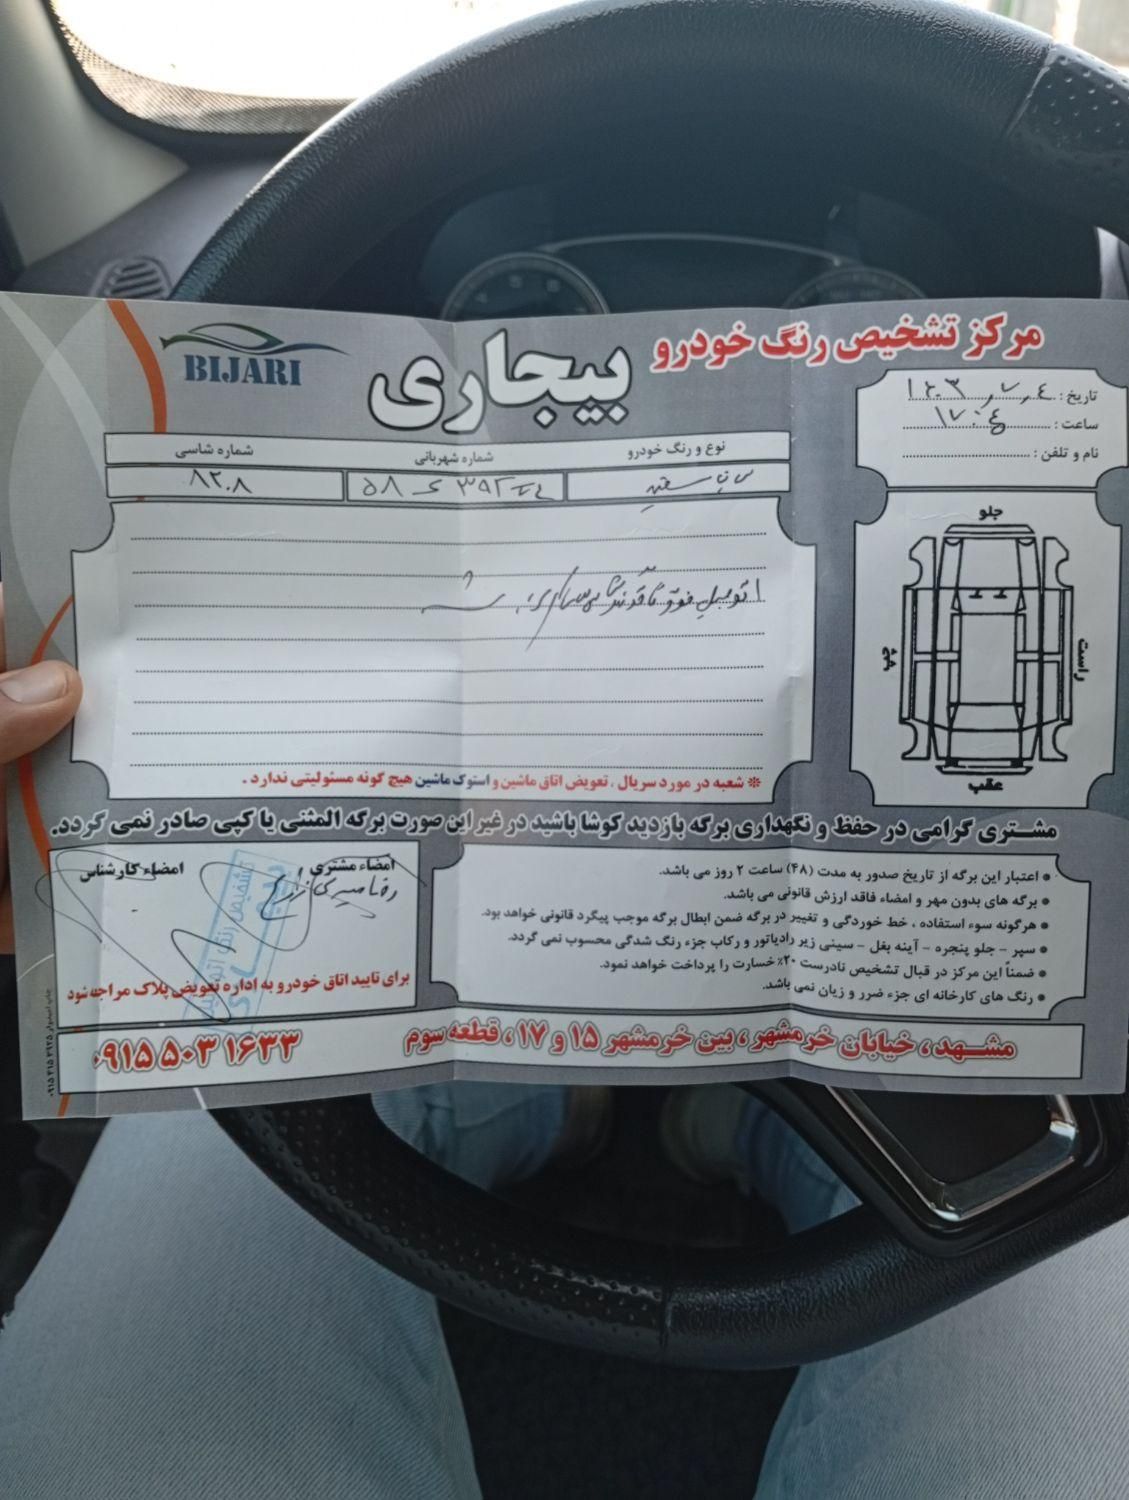 BIJARI
مرکز تشخیص رنگ خودرو
بیجاری
تاریخ :
ساعت : ۱۷:۰۴
نام و تلفن :
نوع و رنگ خودرو
شماره شهربانی
شماره شاسی
سفید
۸۲۰۸
جلو
چپ
راست
عقب
اتومبیل فوق فاقد
❋ شعبه در مورد سریال ، تعویض اتاق ماشین و استوک ماشین هیچ گونه مسئولیتی ندارد .
مشتری گرامی در حفظ و نگهداری برگه بازدید کوشا باشید در غیر این صورت برگه المثنی یا کپی صادر نمی گردد.
● اعتبار این برگه از تاریخ صدور به مدت (۴۸) ساعت ۲ روز می باشد.
● برگه های بدون مهر و امضاء فاقد ارزش قانونی می باشد.
● هرگونه سوء استفاده ، خط خوردگی و تغییر در برگه ضمن ابطال برگه موجب پیگرد قانونی خواهد بود.
● سپر - جلو پنجره - آینه بغل - سینی زیر رادیاتور و رکاب جزء رنگ شدگی محسوب نمی گردد.
● ضمناً این مرکز در قبال تشخیص نادرست ۲۰٪ خسارت را پرداخت خواهد نمود.
● رنگ های کارخانه ای جزء ضرر و زیان نمی باشد.
امضاء مشتری
امضاء کارشناس
برای تایید اتاق خودرو به اداره تعویض پلاک مراجعه شود
مشهد ، خیابان خرمشهر ، بین خرمشهر ۱۵ و ۱۷ ، قطعه سوم
۰۹۱۵ ۵۰۳ ۱۶۳۳